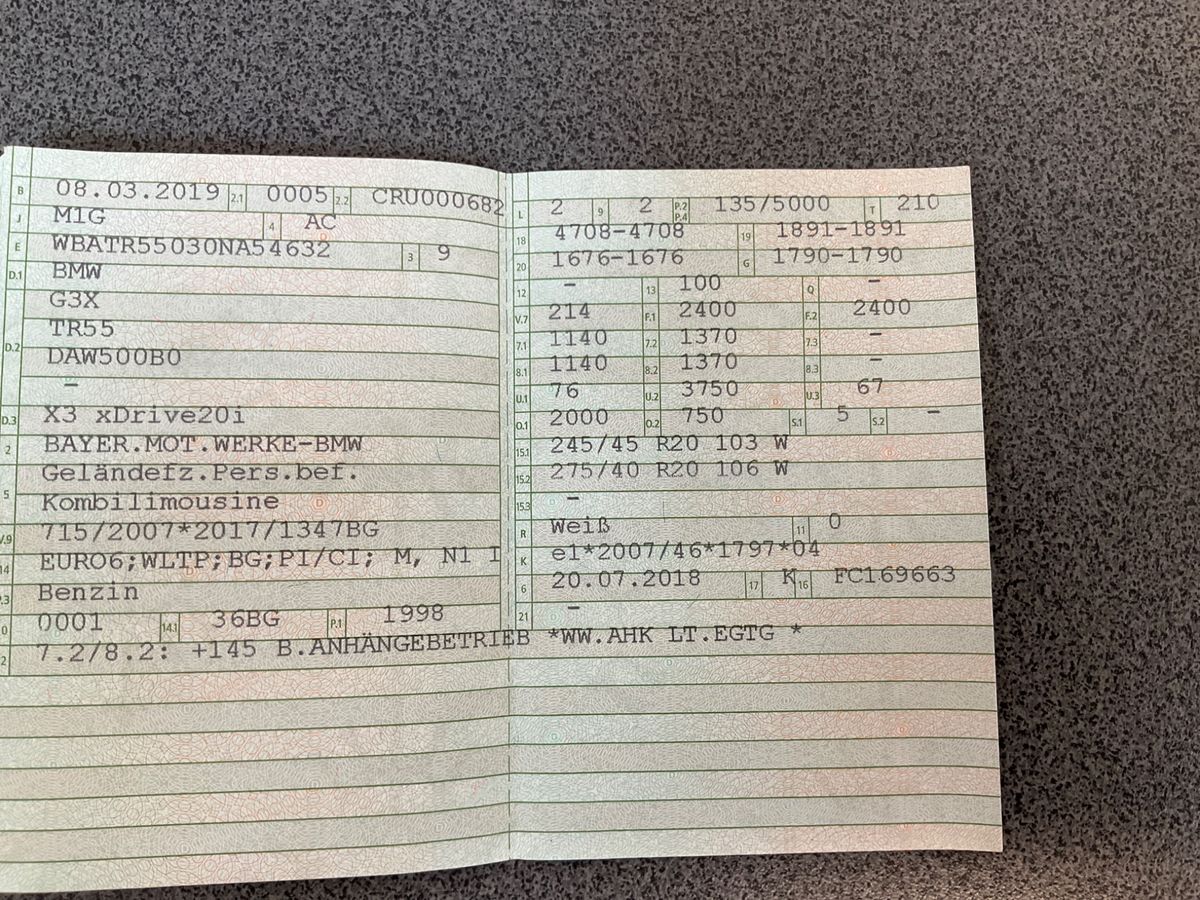 B 08.03.2019 2.1 0005 2.2 CRU000682
J M1G 4 AC
E WBATR55030NA54632 3 9
D.1 BMW
G3X
D.2 TR55
DAW500B0
–
D.3 X3 xDrive20i
2 BAYER.MOT.WERKE-BMW
Geländefz.Pers.bef.
5 Kombilimousine
V.9 715/2007*2017/1347BG
14 EURO6;WLTP;BG;PI/CI; M, N1 I
P.3 Benzin
10 0001 14.1 36BG P.1 1998
22 7.2/8.2: +145 B.ANHÄNGEBETRIEB *WW.AHK LT.EGTG *
L 2 9 2 P.2 P.4 135/5000 T 210
18 4708-4708 19 1891-1891
20 1676-1676 G 1790-1790
12 – 13 100 Q –
V.7 214 F.1 2400 F.2 2400
7.1 1140 7.2 1370 7.3 –
8.1 1140 8.2 1370 8.3 –
U.1 76 U.2 3750 U.3 67
O.1 2000 O.2 750 S.1 5 S.2 –
15.1 245/45 R20 103 W
15.2 275/40 R20 106 W
15.3 –
R Weiß 11 0
K e1*2007/46*1797*04
6 20.07.2018 17 K 16 FC169663
21 –